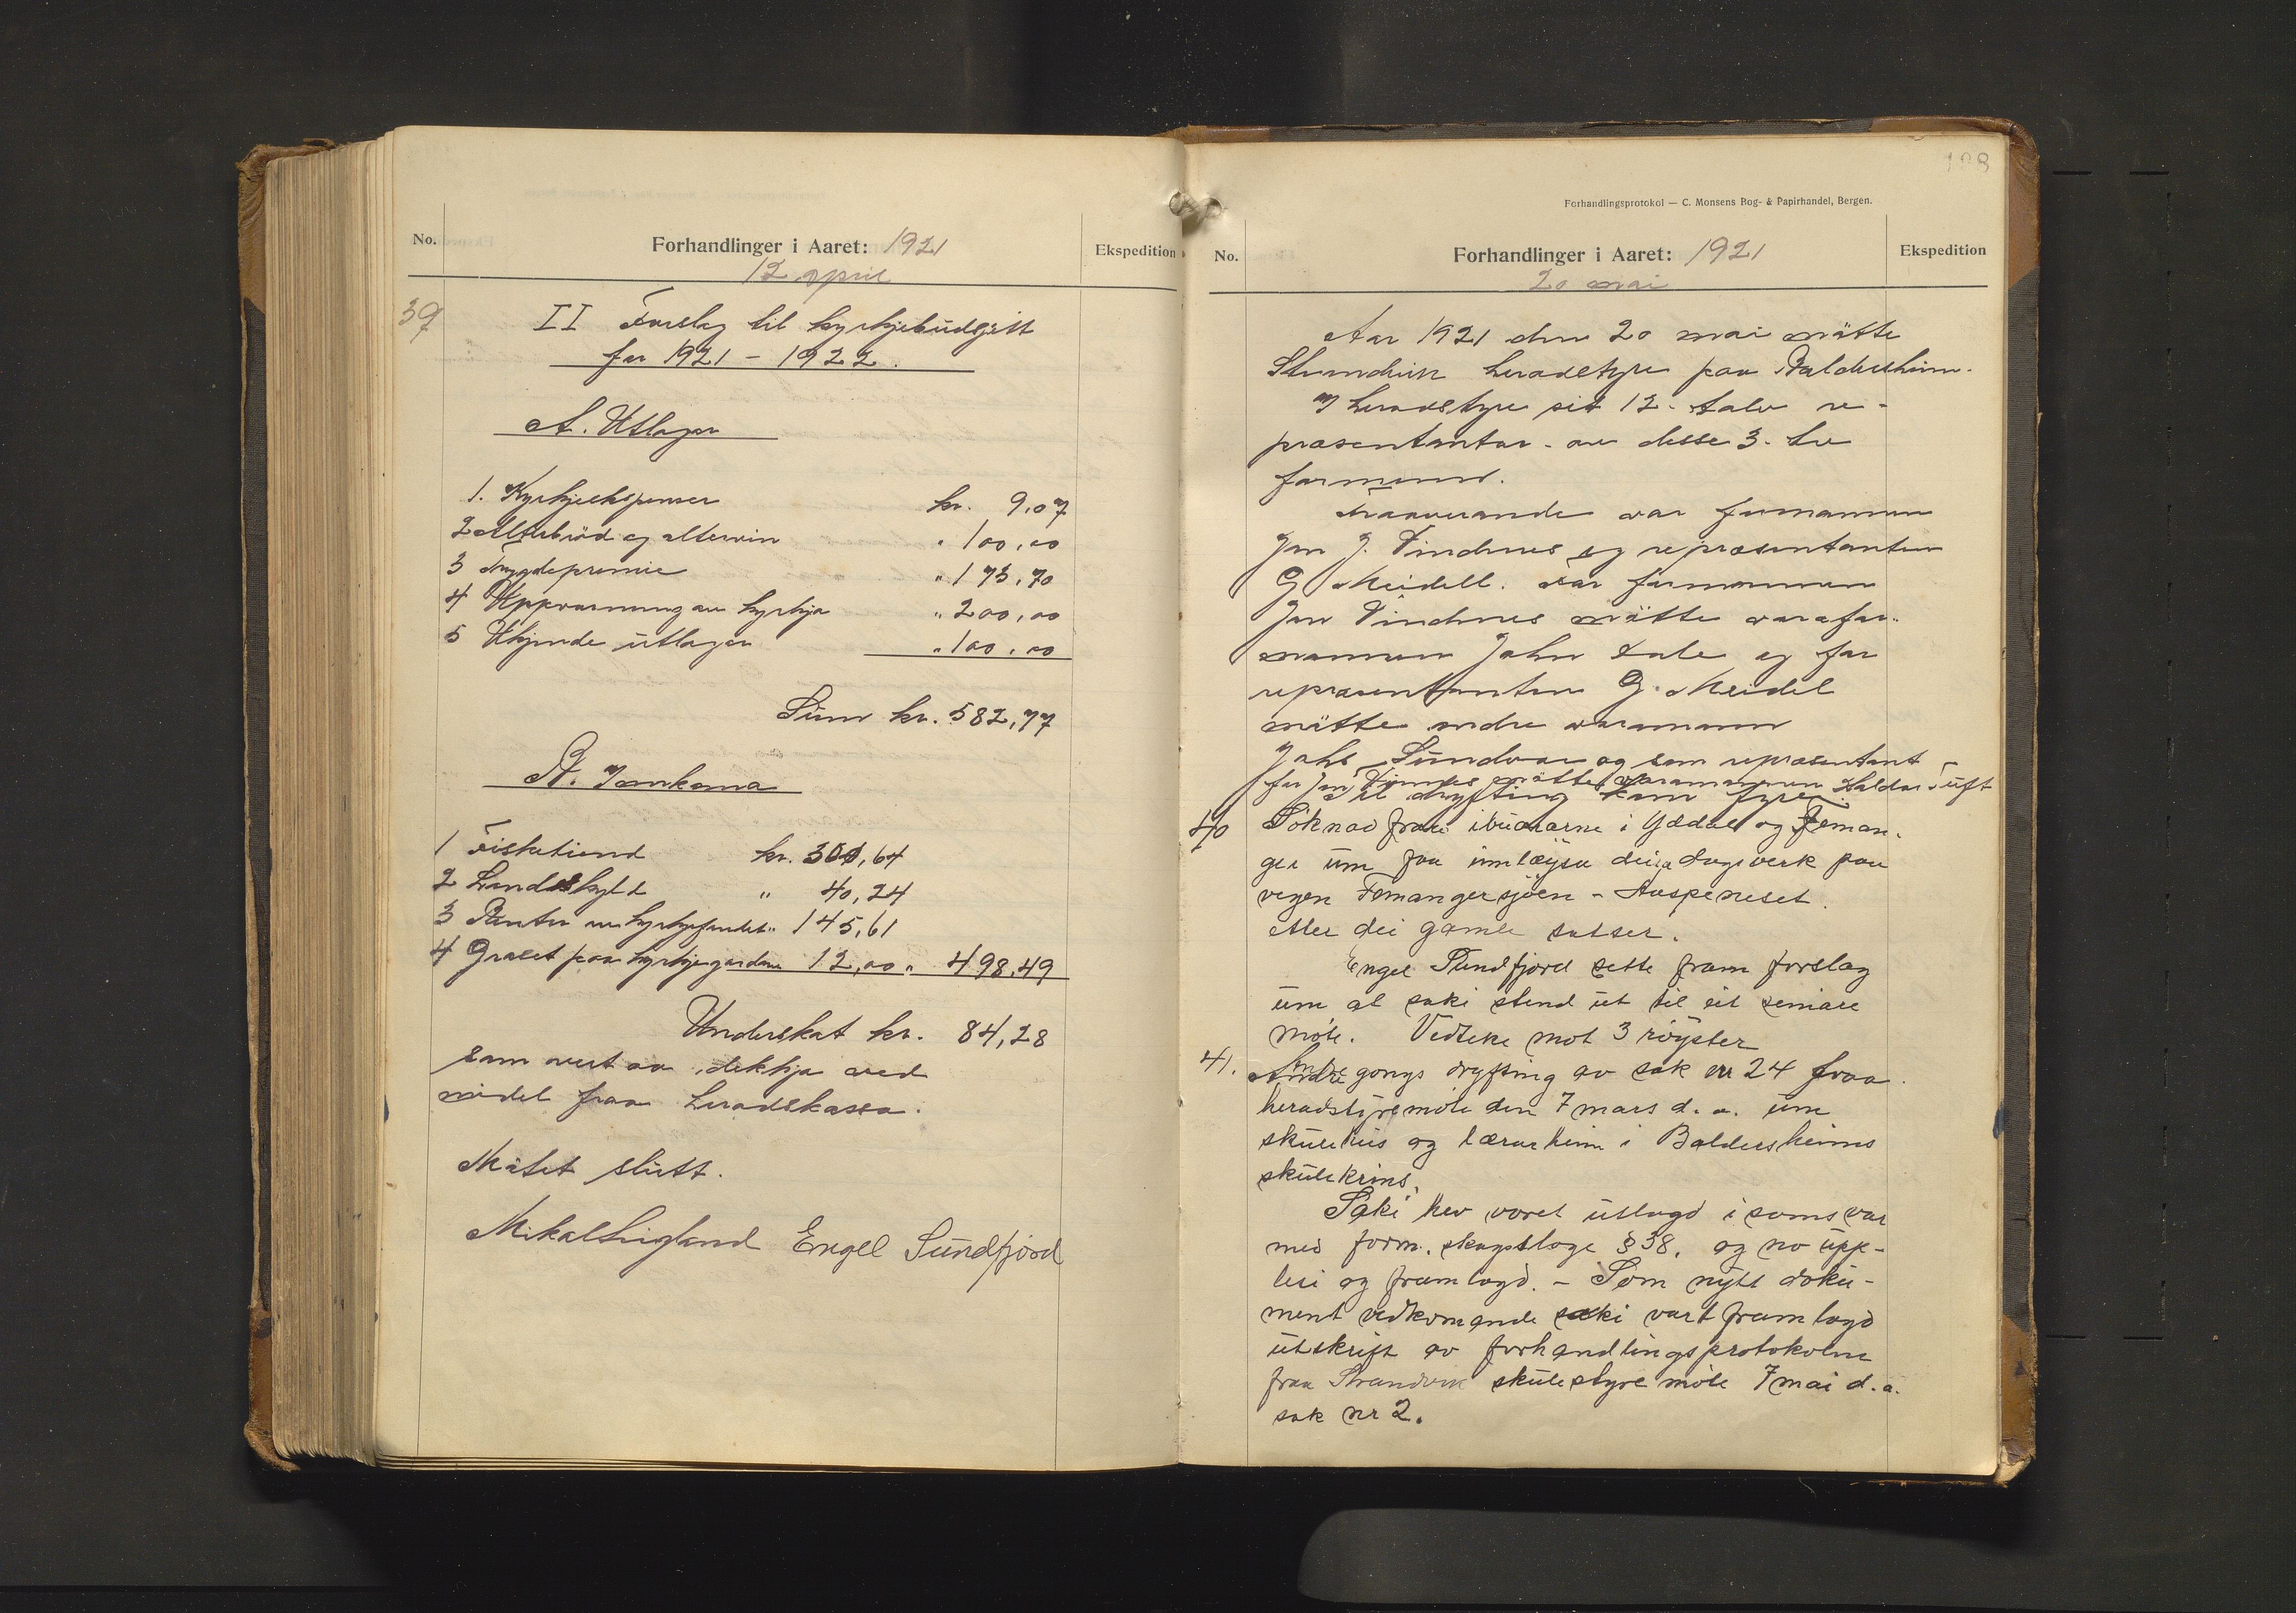 No.
Forhandlinger i Aaret: 1921
Ekspedition
12 april
39
II Forslag til kyrkjebudsjett
for 1921 - 1922.
A. Utlagor
1. Kyrkjeekspenser kr. 9,07
2 Alterbröd og altervin " 100,00
3 Trygdepremie " 173,70
4 Uppvarming av kyrkja " 200,00
5 Ukjende utlagor " 100,00
Sum kr. 582,77
B. Innkoma
1 Fisketiend kr. 300,64
2 Landskyld " 40,24
3 Renter av kyrkjefondet " 145,61
4 Graset paa kyrkjegardane 12,00 " 498,49
Underskot kr. 84,28
som vert aa dekkja med
midel fraa heradskassa.
Mötet slutt.
Mikal Ligland Engel Sundfjord
188
Forhandlingsprotokol — C. Monsens Bog- & Papirhandel, Bergen.
No.
Forhandlinger i Aaret: 1921
Ekspedition
20 mai
Aar 1921 den 20 mai mötte
Strandvik heradstyre paa Baldersheim.
I heradstyre sit 12 - tolv re-
præsentantar - av desse 3 - tre
formenn.
Fraaverande var formannen
Jon J. Vindnes og representanten
G Meidell. For formannen
Jon Vindnes mötte varafor-
mannen John Dale og for
representanten G. Meidel
mötte andre varamann
Johs Sundvor og som representant
for Jon Vinnes mötte varamannen Haldor Tuft
Til dryfting kom fyre:
40 Söknad fraa ibuararne i Yddal og Feman-
ger um faa innlöysa deira dagsverk paa
vegen Femangersjöen - Auspeneset.
etter dei gamle satser.
Engel Sundfjord sette fram forslag
um at saki stend ut til eit seniare
möte. Vedteke mot 3 röyster
41. Andre gongs dryfting av sak nr 24 fraa
heradstyremöte den 7 mars d. a. um
skulehus og lærarheim i Baldersheims
skulekrins.
Saki hev voret utlagd i samsvar
med form. skapsloge § 38, og no upp-
lesi og framlagd. - Som nytt doku-
ment vedkomande saki vart framlagd
utskrift av forhandlingsprotokolen
fraa Strandvik skulestyre möte 7 mai d. a.
sak nr 2.